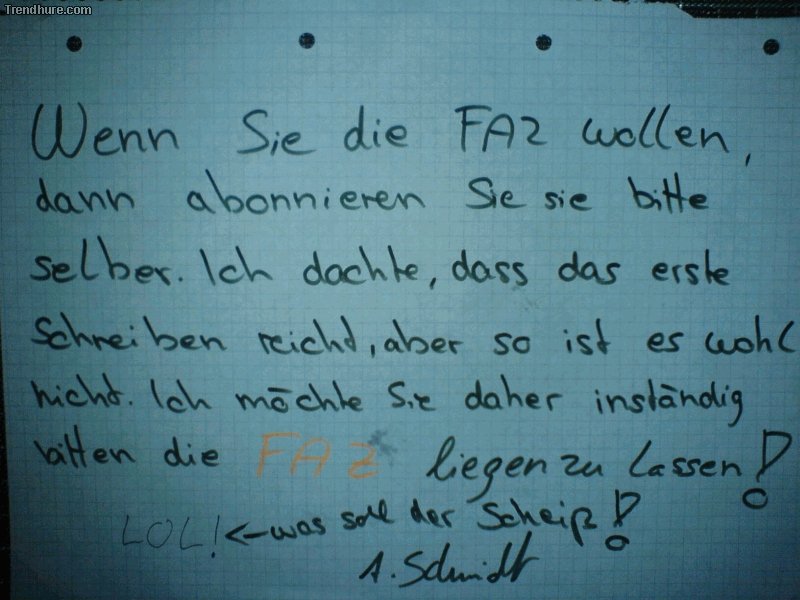 Trendhure.com
Wenn Sie die FAZ wollen,
dann abonnieren Sie sie bitte
selber. Ich dachte, dass das erste
Schreiben reicht, aber so ist es wohl
nicht. Ich möchte Sie daher inständig
bitten die FAZ liegen zu lassen!
LOL! <-was soll der Scheiß!
A. Schmidt